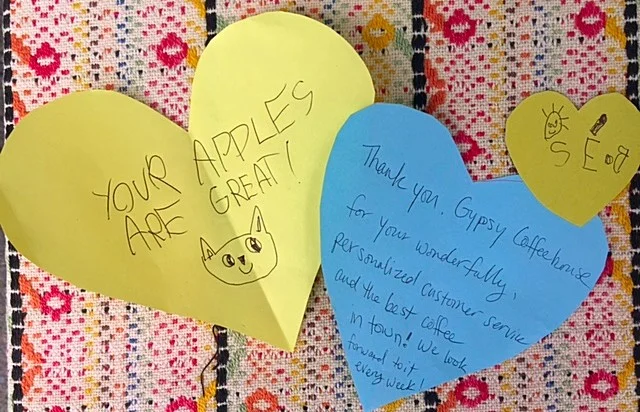 YOUR APPLES
ARE GREAT!
Thank you, Gypsy Coffeehouse
for your wonderfully,
personalized customer service
and the best coffee
in town! We look
forward to it
every week!